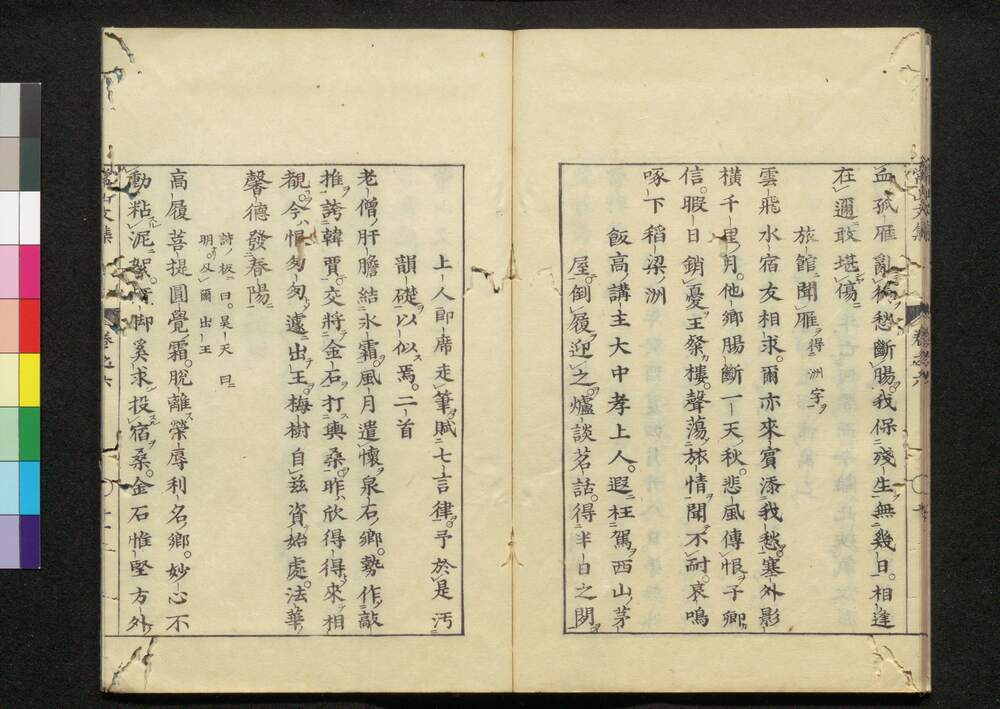 血孤雁亂。愁斷腸。我保殘生無幾日。相逢
在邇敢堪傷
旅館聞雁得洲字
雲飛水宿友相求。爾亦來賓添我愁。塞外影
橫千里月。他鄉腸斷一天秋。悲風傳恨子卿
信。暇日銷憂王粲樓。聲蕩旅情聞不耐。哀鳴
啄下稻梁洲
飯高講主大中孝上人。遐枉駕西山茅
屋。倒履迎之。爐談茗話。得半日之閑
上人即席走筆賦七言律。予於是汚
韻礎以似焉。二首
老僧肝膽結氷霜。風月遣懷泉石鄉。勢作敲
推誇韓賈。交將金石打輿桑。昨欣得得來相
覩。今恨匆匆遽出王。梅樹自茲資始處。法華
馨德發春陽
詩板曰。昊天曰
明。及爾出王
高履菩提圓覺霜。脫離榮辱利名鄉。妙心不
動粘泥絮。脚奚求投宿桑。金石惟堅方外
卷之六